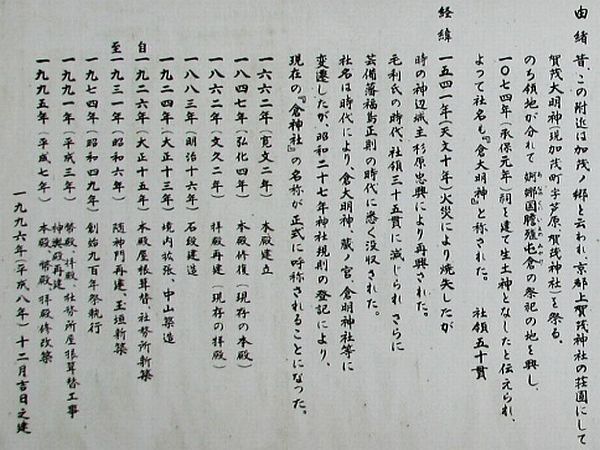 由緒 昔、この附近は加茂ノ郷と云われ、京都上賀茂神社の荘園にして
賀茂大明神(現加茂町字芦原賀茂神社)を祭る。
のち領地が分れて 婀娜国膽殖屯倉の祭祀の地を興し、
一〇七四年(承保元年)祠を建て生土神となしたと伝えられ、
よって社名も『倉大明神』と称された。 社領五十貫
経緯 一五四一年(天文十年)火災により焼失したが
時の神辺城主杉原忠興により再興された。
毛利氏の時代、社領三十五貫に減じられ、さらに
芸備藩福島正則の時代に悉く没収された。
社名は時代により、倉大明神、蔵ノ宮、倉明神社等に
変遷したが、昭和二十七年神社規則の登記により、
現在の『倉神社』の名称が正式に呼称されることになった。
一六六二年(寛文二年) 本殿建立
一八四七年(弘化四年) 本殿修復(現存の本殿)
一八六二年(文久二年) 拝殿再建(現存の拝殿)
一八八三年(明治十六年) 石段建造
一九二四年(大正十三年) 境内拡張、中山築造
自 一九二六年(大正十五年) 本殿屋根葺替、社務所新築
至 一九三一年(昭和六年) 随神門再建、玉垣新築
一九七四年(昭和四九年) 創始九百年祭執行
一九九一年(平成三年) 幣殿、拝殿、社務所屋根葺替工事
神輿殿再建
一九九五年(平成七年) 本殿、幣殿、拝殿修改築
一九九六年(平成八年)十二月吉日之建